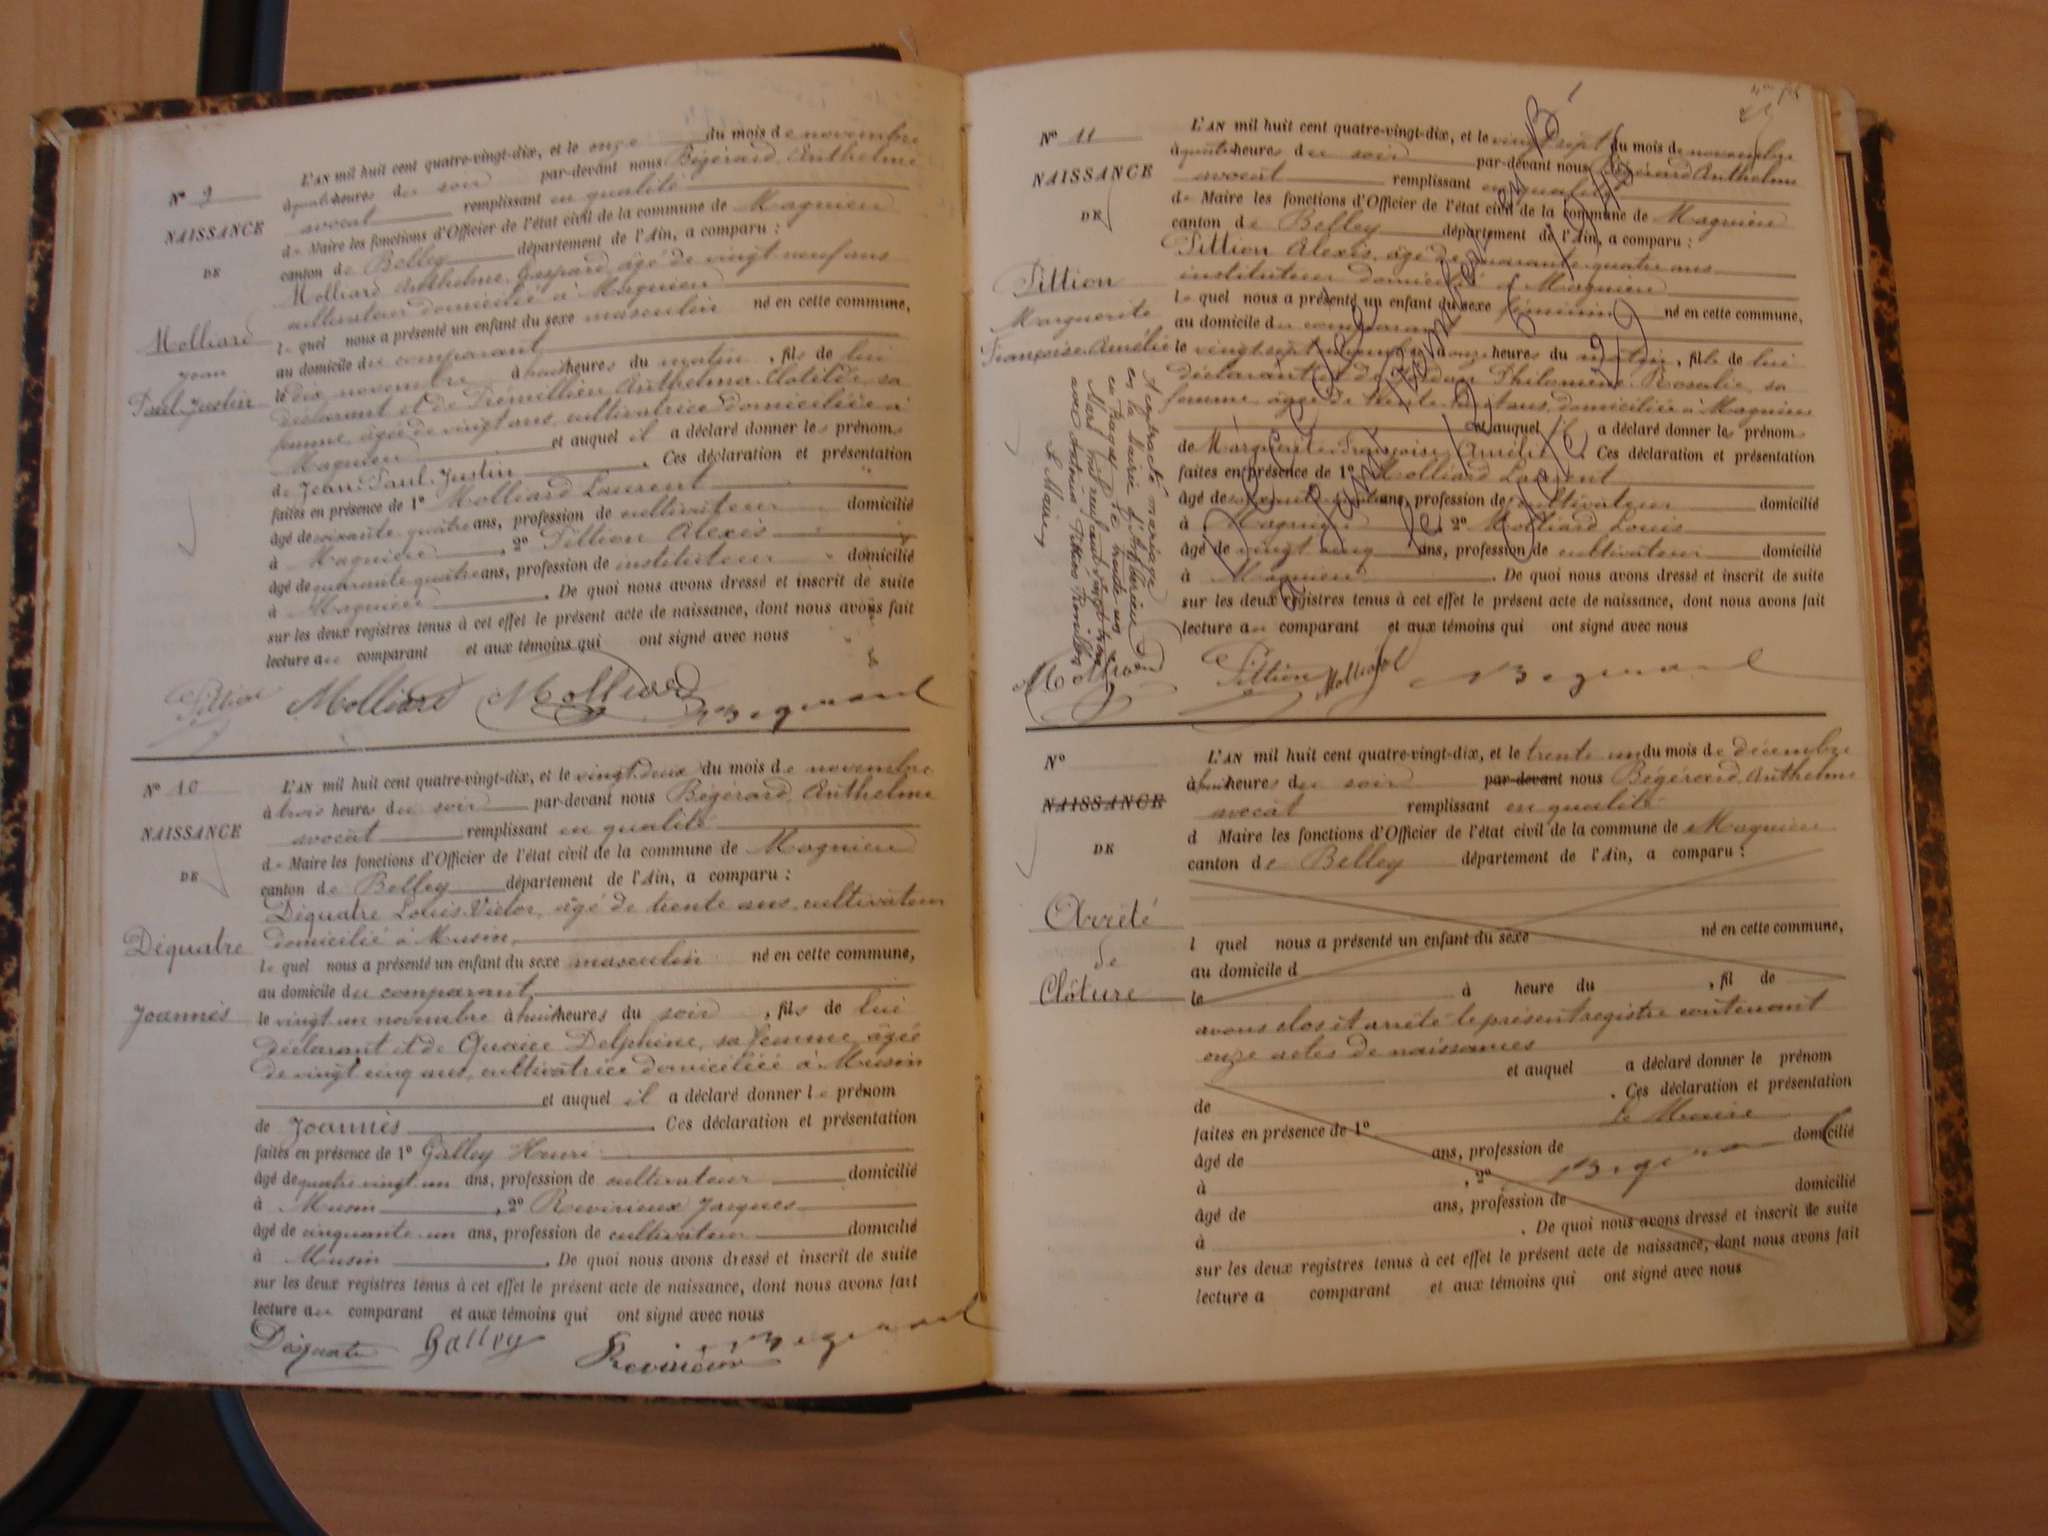 N° 9
NAISSANCE
DE
Molliard
Jean
Paul Justin
L'AN mil huit cent quatre-vingt-dix, et le onze du mois de novembre
à quatre heures du soir par-devant nous Bégérard Anthelme
avocat remplissant en qualité
de Maire les fonctions d'Officier de l'état civil de la commune de Magnieu
canton de Belley département de l'Ain, a comparu :
Molliard Anthelme Gaspard, âgé de vingt neuf ans
cultivateur domicilié à Magnieu
lequel nous a présenté un enfant du sexe masculin né en cette commune,
au domicile du comparant
le dix novembre à heures du matin, fils de lui
déclarant et de Anthelma Clotilde, sa
femme, âgée de vingt ans, cultivatrice domiciliée à
Magnieu et auquel il a déclaré donner les prénoms
de Jean-Paul-Justin. Ces déclaration et présentation
faites en présence de 1° Molliard Laurent
âgé de soixante quatre ans, profession de cultivateur domicilié
à Magnieu, 2° Pittion Alexis
âgé de quarante quatre ans, profession de instituteur domicilié
à Magnieu. De quoi nous avons dressé et inscrit de suite
sur les deux registres tenus à cet effet le présent acte de naissance, dont nous avons fait
lecture au comparant et aux témoins qui ont signé avec nous
Pittion Molliard Molliard Begerard
N° 10
NAISSANCE
DE
Déquatre
Joannès
L'AN mil huit cent quatre-vingt-dix, et le vingt-deux du mois de novembre
à trois heures du soir par-devant nous Bégérard, Anthelme
avocat remplissant en qualité
de Maire les fonctions d'Officier de l'état civil de la commune de Magnieu
canton de Belley département de l'Ain, a comparu :
Déquatre Louis-Victor, âgé de trente ans, cultivateur
domicilié à Musin,
lequel nous a présenté un enfant du sexe masculin né en cette commune,
au domicile du comparant,
le vingt un novembre à huit heures du soir, fils de lui
déclarant et de Delphine, sa femme, âgée
de vingt cinq ans, cultivatrice domiciliée à Musin
et auquel il a déclaré donner le prénom
de Joannès. Ces déclaration et présentation
faites en présence de 1° Galley Henri
âgé de quatre vingt un ans, profession de cultivateur domicilié
à Musin, 2° Revirieux Jacques
âgé de cinquante un ans, profession de cultivateur domicilié
à Musin. De quoi nous avons dressé et inscrit de suite
sur les deux registres tenus à cet effet le présent acte de naissance, dont nous avons fait
lecture au comparant et aux témoins qui ont signé avec nous
Déquatre Galley Revirieux Begerard
N° 11
NAISSANCE
DE
Pittion
Marguerite
Françoise Amélie
L'AN mil huit cent quatre-vingt-dix, et le vingt sept du mois de novembre
à quatre heures du soir par-devant nous Bégérard Anthelme
avocat remplissant en qualité
de Maire les fonctions d'Officier de l'état civil de la commune de Magnieu
canton de Belley département de l'Ain, a comparu :
Pittion Alexis, âgé de quarante quatre ans
instituteur domicilié à Magnieu
lequel nous a présenté un enfant du sexe féminin né en cette commune,
au domicile du comparant
le vingt sept novembre à onze heures du matin, fille de lui
déclarant et de Philomène Rosalie, sa
femme, âgée de trente huit ans, domiciliée à Magnieu
et auquel il a déclaré donner les prénoms
de Marguerite Françoise Amélie. Ces déclaration et présentation
faites en présence de 1° Molliard Laurent
âgé de ans, profession de cultivateur domicilié
à Magnieu, 2° Molliard Louis
âgé de vingt cinq ans, profession de cultivateur domicilié
à Magnieu. De quoi nous avons dressé et inscrit de suite
sur les deux registres tenus à cet effet le présent acte de naissance, dont nous avons fait
lecture au comparant et aux témoins qui ont signé avec nous
Molliard Pittion Molliard Begerard
A contracté mariage
en la Mairie
en Bugey le trente-un
Mars mil neuf cent
avec Pittion
Le Maire,
Décédée
le 17 septembre
N°
NAISSANCE
DE
Arrêté
de
Clôture
L'AN mil huit cent quatre-vingt-dix, et le trente un du mois de décembre
à heures du soir par-devant nous Bégérard, Anthelme
avocat remplissant en qualité
d Maire les fonctions d'Officier de l'état civil de la commune de Magnieu
canton de Belley département de l'Ain, a comparu :
l quel nous a présenté un enfant du sexe né en cette commune,
au domicile d
le à heure du , fil de
avons clos et arrêté le présent registre contenant
onze actes de naissances
et auquel a déclaré donner le prénom
de . Ces déclaration et présentation
faites en présence de 1° Le Maire
âgé de ans, profession de domicilié
à , 2° Begerard
âgé de ans, profession de domicilié
à . De quoi nous avons dressé et inscrit de suite
sur les deux registres tenus à cet effet le présent acte de naissance, dont nous avons fait
lecture a comparant et aux témoins qui ont signé avec nous